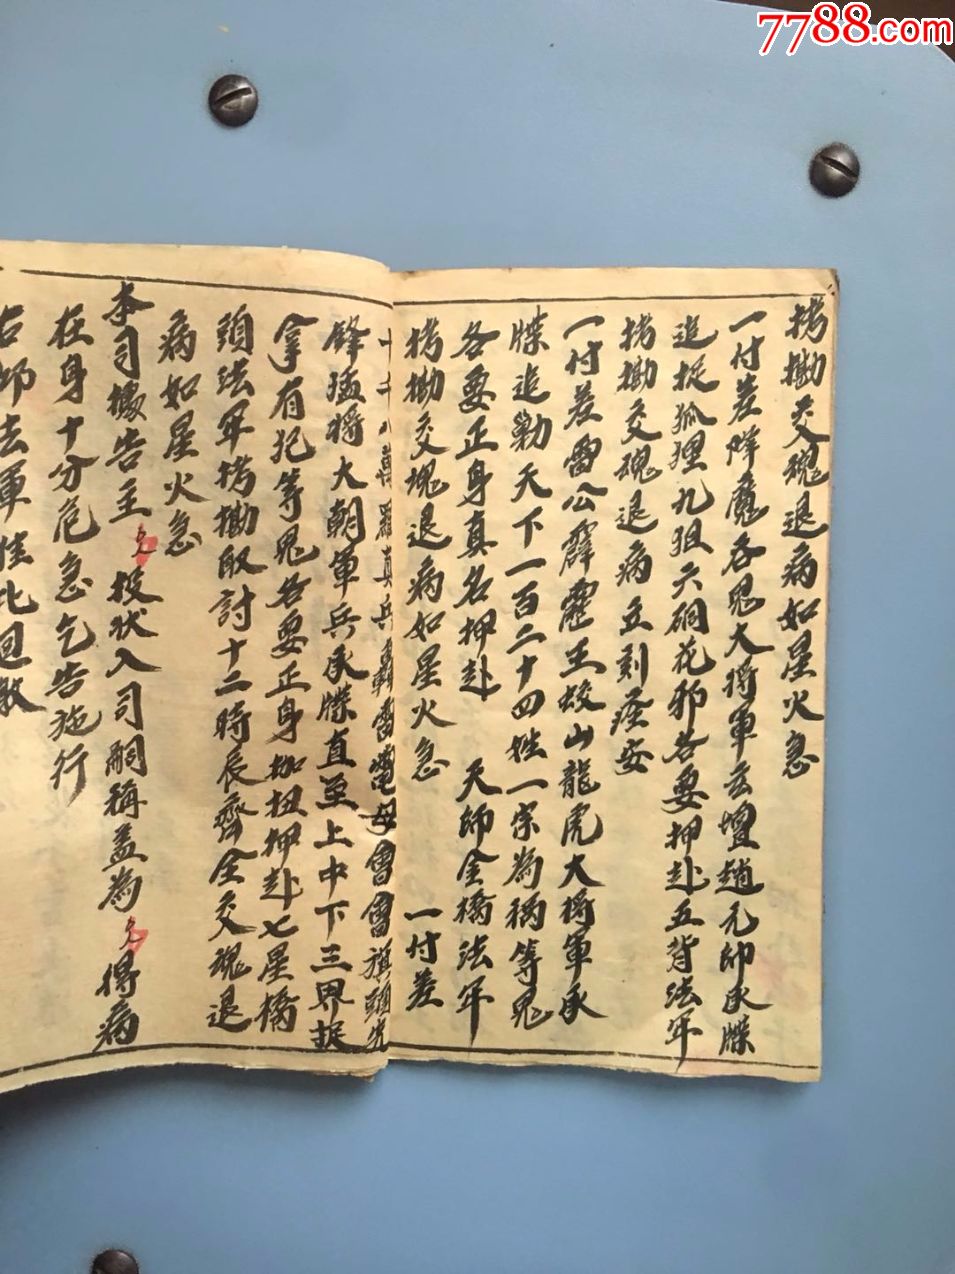 7788.com
拷拗交魂退病如星火急
一付差降魔各鬼大将軍玄壇趙元帅承牒
追捉狐狸九狙六硐花邪各要押赴五背法牢
拷拗交魂退病立刻痊安
一付差雷公霹靂王蛟山龍虎大將軍承
牒追勦天下一百二十四姓一宗為禍等鬼
各要正身真名押赴 天師金橋法牢
拷拗交魂退病如星火急 一付差
真兵 雷電母 旗頭先
鋒猛將大朝軍兵承牒直至上中下三界捉
拿有犯等鬼各要正身枷扭押赴七星橋
頭法牢拷拗取討十二時辰齊全交魂退
病如星火急
本司據告主 投状入司嗣稱盖為 得病
在身十分危急乞告施行
右 去軍 此迴